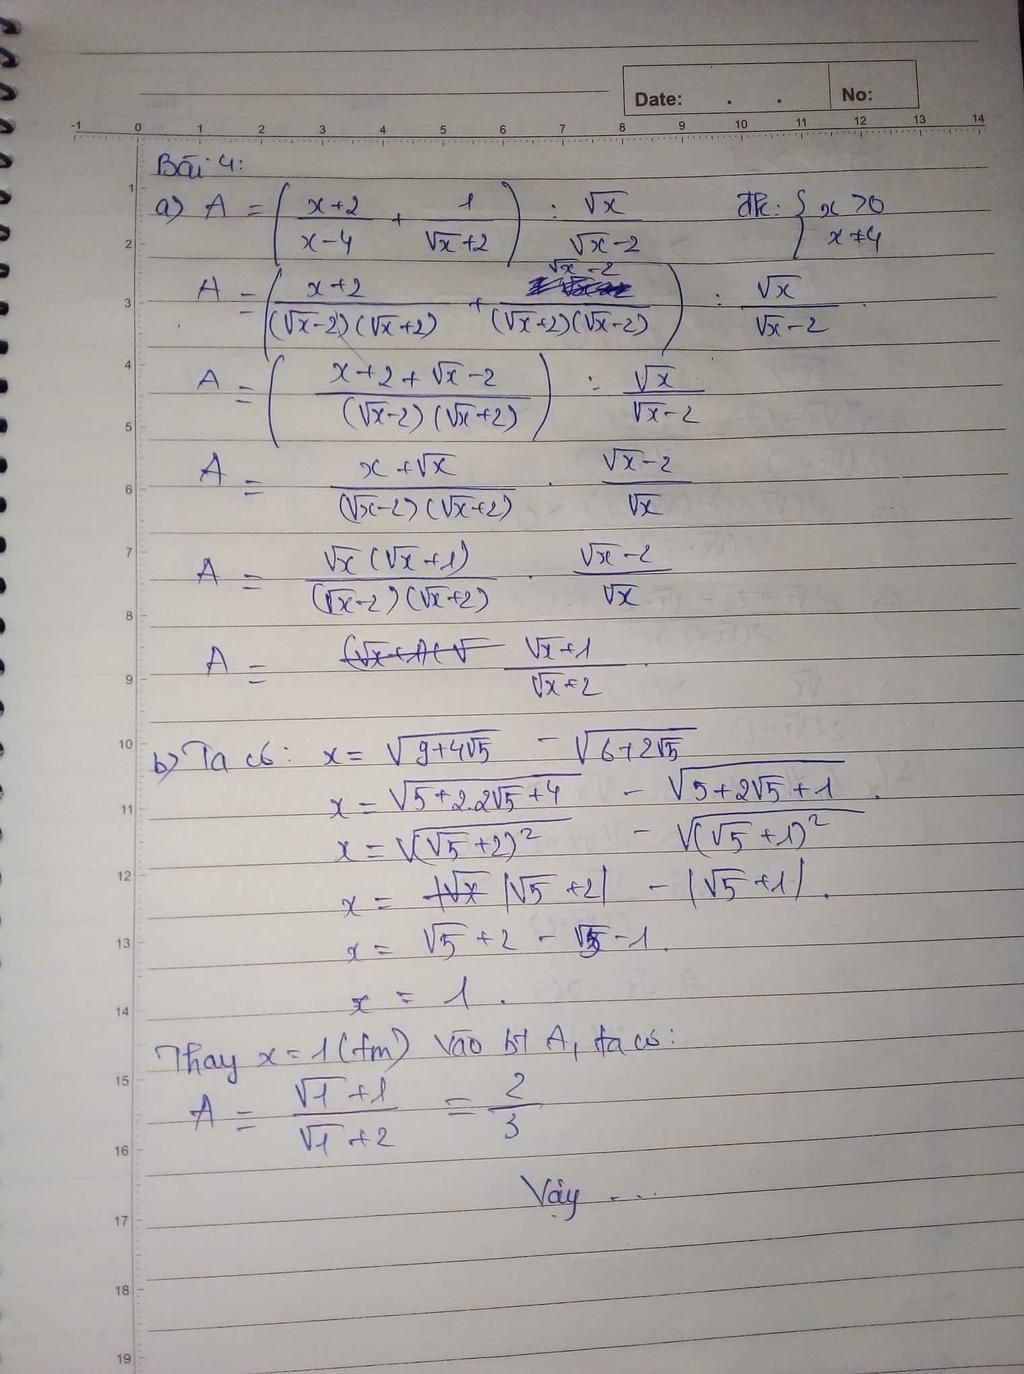 Date: . . No:
-1 0 1 2 3 4 5 6 7 8 9 10 11 12 13 14
Bài 4:
a) A = ( (x+2)/(x-4) + 1/(√x+2) ) : √x/(√x-2) đk: { x > 0
x ≠ 4
A = ( (x+2)/((√x-2)(√x+2)) + (√x-2)/((√x+2)(√x-2)) ) : √x/(√x-2)
A = ( (x+2+√x-2)/((√x-2)(√x+2)) ) : √x/(√x-2)
A = (x+√x)/((√x-2)(√x+2)) . (√x-2)/√x
A = √x(√x+1)/((√x-2)(√x+2)) . (√x-2)/√x
A = (√x+1)/(√x+2)
b) Ta có: x = √(9+4√5) - √(6+2√5)
x = √(5+2.2√5+4) - √(5+2√5+1).
x = √((√5+2)²) - √((√5+1)²)
x = |√5+2| - |√5+1|.
x = √5+2 - √5-1.
x = 1.
Thay x=1 (tm) vào bt A, ta có:
A = (√1+1)/(√1+2) = 2/3
Vậy ...
1
2
3
4
5
6
7
8
9
10
11
12
13
14
15
16
17
18
19